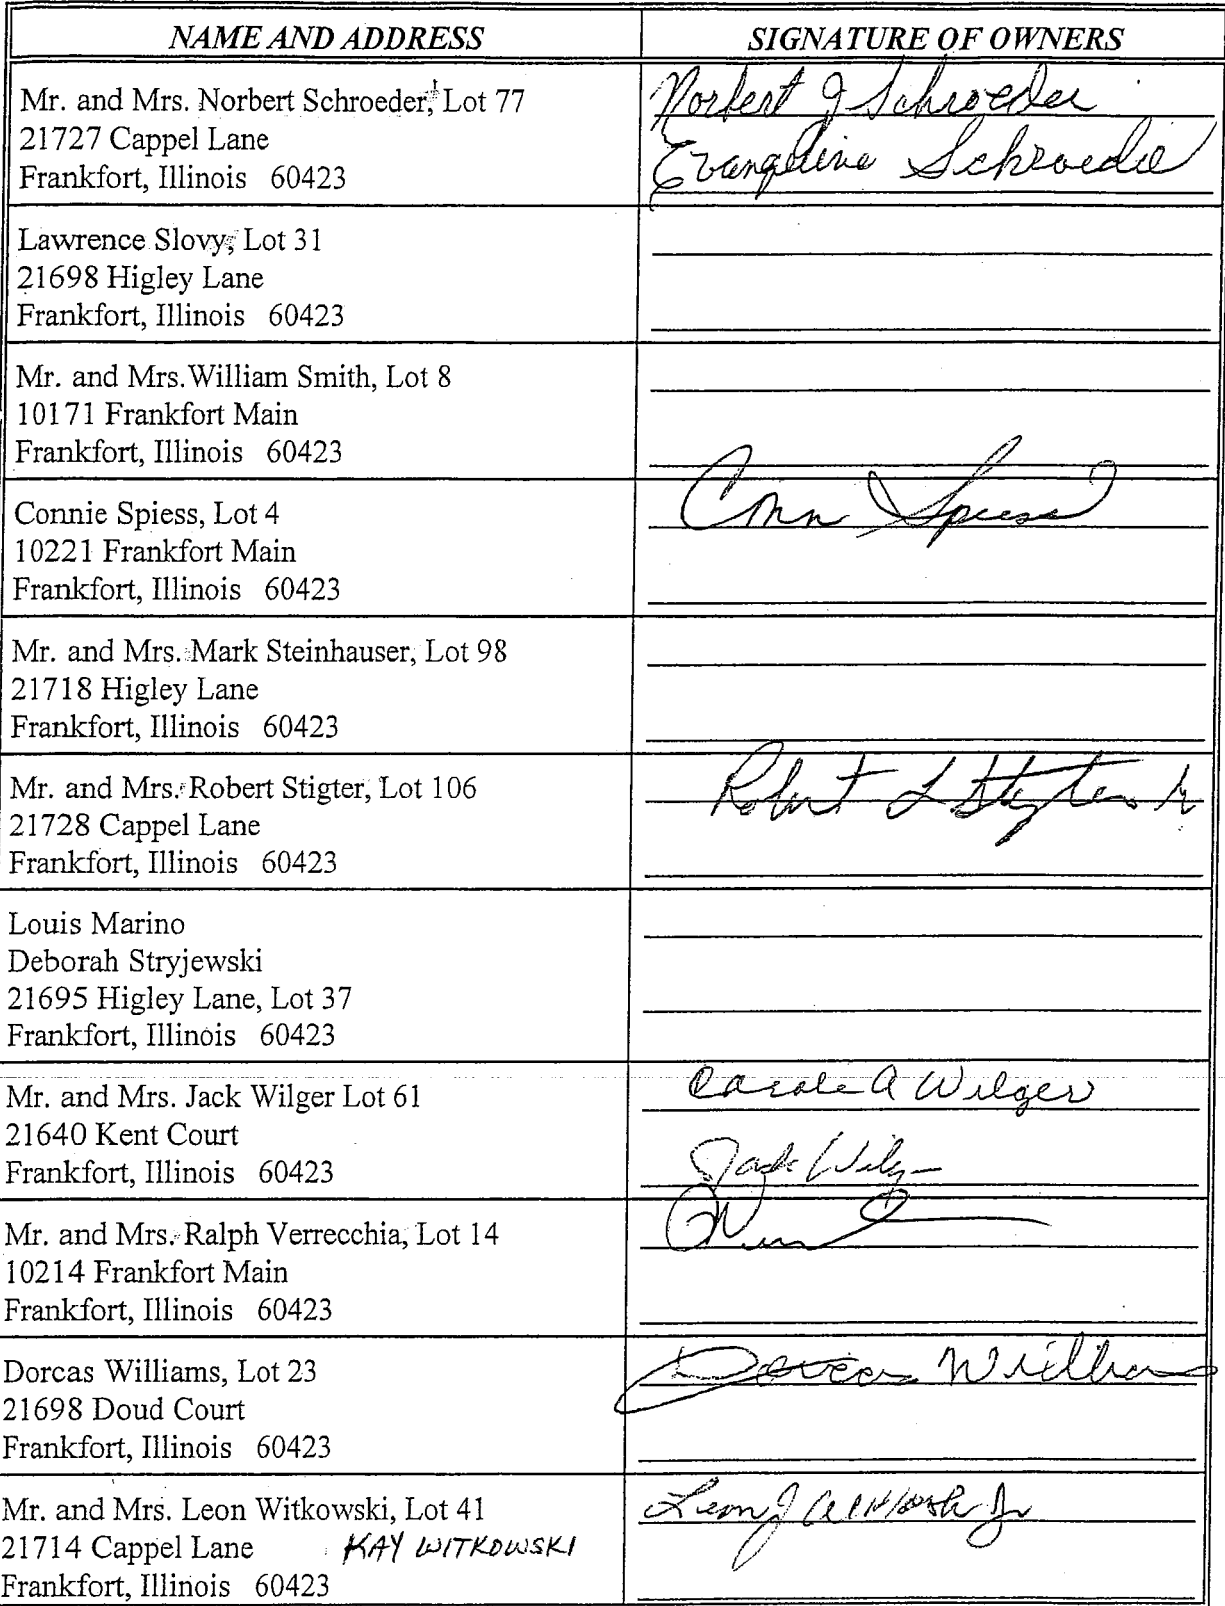 NAME AND ADDRESS
SIGNATURE OF OWNERS
Mr. and Mrs. Norbert Schroeder, Lot 77
21727 Cappel Lane
Frankfort, Illinois 60423
Norbert J Schroeder
Evangeline Schroeder
Lawrence Slovy, Lot 31
21698 Higley Lane
Frankfort, Illinois 60423
Mr. and Mrs.William Smith, Lot 8
10171 Frankfort Main
Frankfort, Illinois 60423
Connie Spiess, Lot 4
10221 Frankfort Main
Frankfort, Illinois 60423
Conn Spiess
Mr. and Mrs. Mark Steinhauser, Lot 98
21718 Higley Lane
Frankfort, Illinois 60423
Mr. and Mrs. Robert Stigter, Lot 106
21728 Cappel Lane
Frankfort, Illinois 60423
Robert L Stigter Jr
Louis Marino
Deborah Stryjewski
21695 Higley Lane, Lot 37
Frankfort, Illinois 60423
Mr. and Mrs. Jack Wilger Lot 61
21640 Kent Court
Frankfort, Illinois 60423
Carole A Wilger
Jack Wilger
Mr. and Mrs. Ralph Verrecchia, Lot 14
10214 Frankfort Main
Frankfort, Illinois 60423
Dorcas Williams, Lot 23
21698 Doud Court
Frankfort, Illinois 60423
Dorcas Williams
Mr. and Mrs. Leon Witkowski, Lot 41
21714 Cappel Lane KAY WITKOWSKI
Frankfort, Illinois 60423
Leon J Witkowski Jr